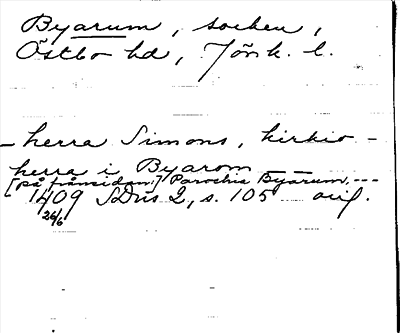 Byarum, socken,
Östbo hd, Jönk. l.
– herra Simons, kirkio –
herra i Byarom — —
[på framsidan:] Parochia Byarum, ---
1409 SDns 2, s. 105 orig.
26/6